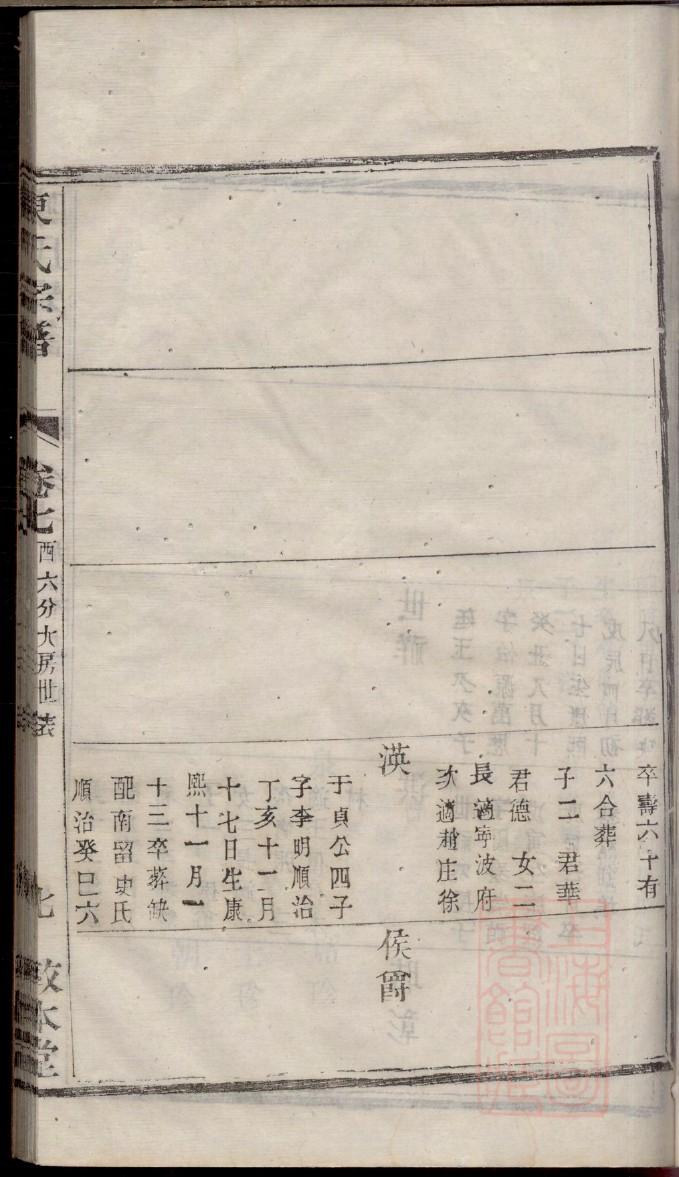 卒壽六十有
六合葬
子二 君華
君德 女二
長適寧波府
次適趙庄徐
渶
侯爵
于貞公四子
字季明順治
丁亥十一月
十七日生康
熙十一月一
十三卒葬缺
配南留史氏
順治癸巳六
氏宗譜
卷七
酉六分大房世表
七
敦本堂